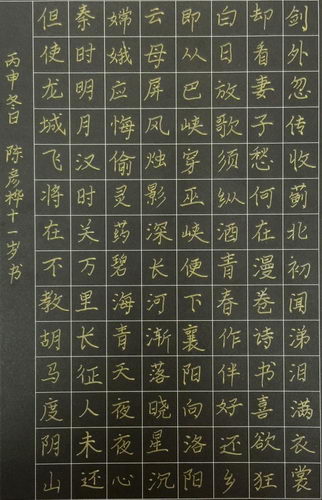 剑外忽传收蓟北初闻涕泪满衣裳
却看妻子愁何在漫卷诗书喜欲狂
白日放歌须纵酒青春作伴好还乡
即从巴峡穿巫峡便下襄阳向洛阳
云母屏风烛影深长河渐落晓星沉
嫦娥应悔偷灵药碧海青天夜夜心
秦时明月汉时关万里长征人未还
但使龙城飞将在不教胡马度阴山
丙申冬日 陈彦桦十一岁书